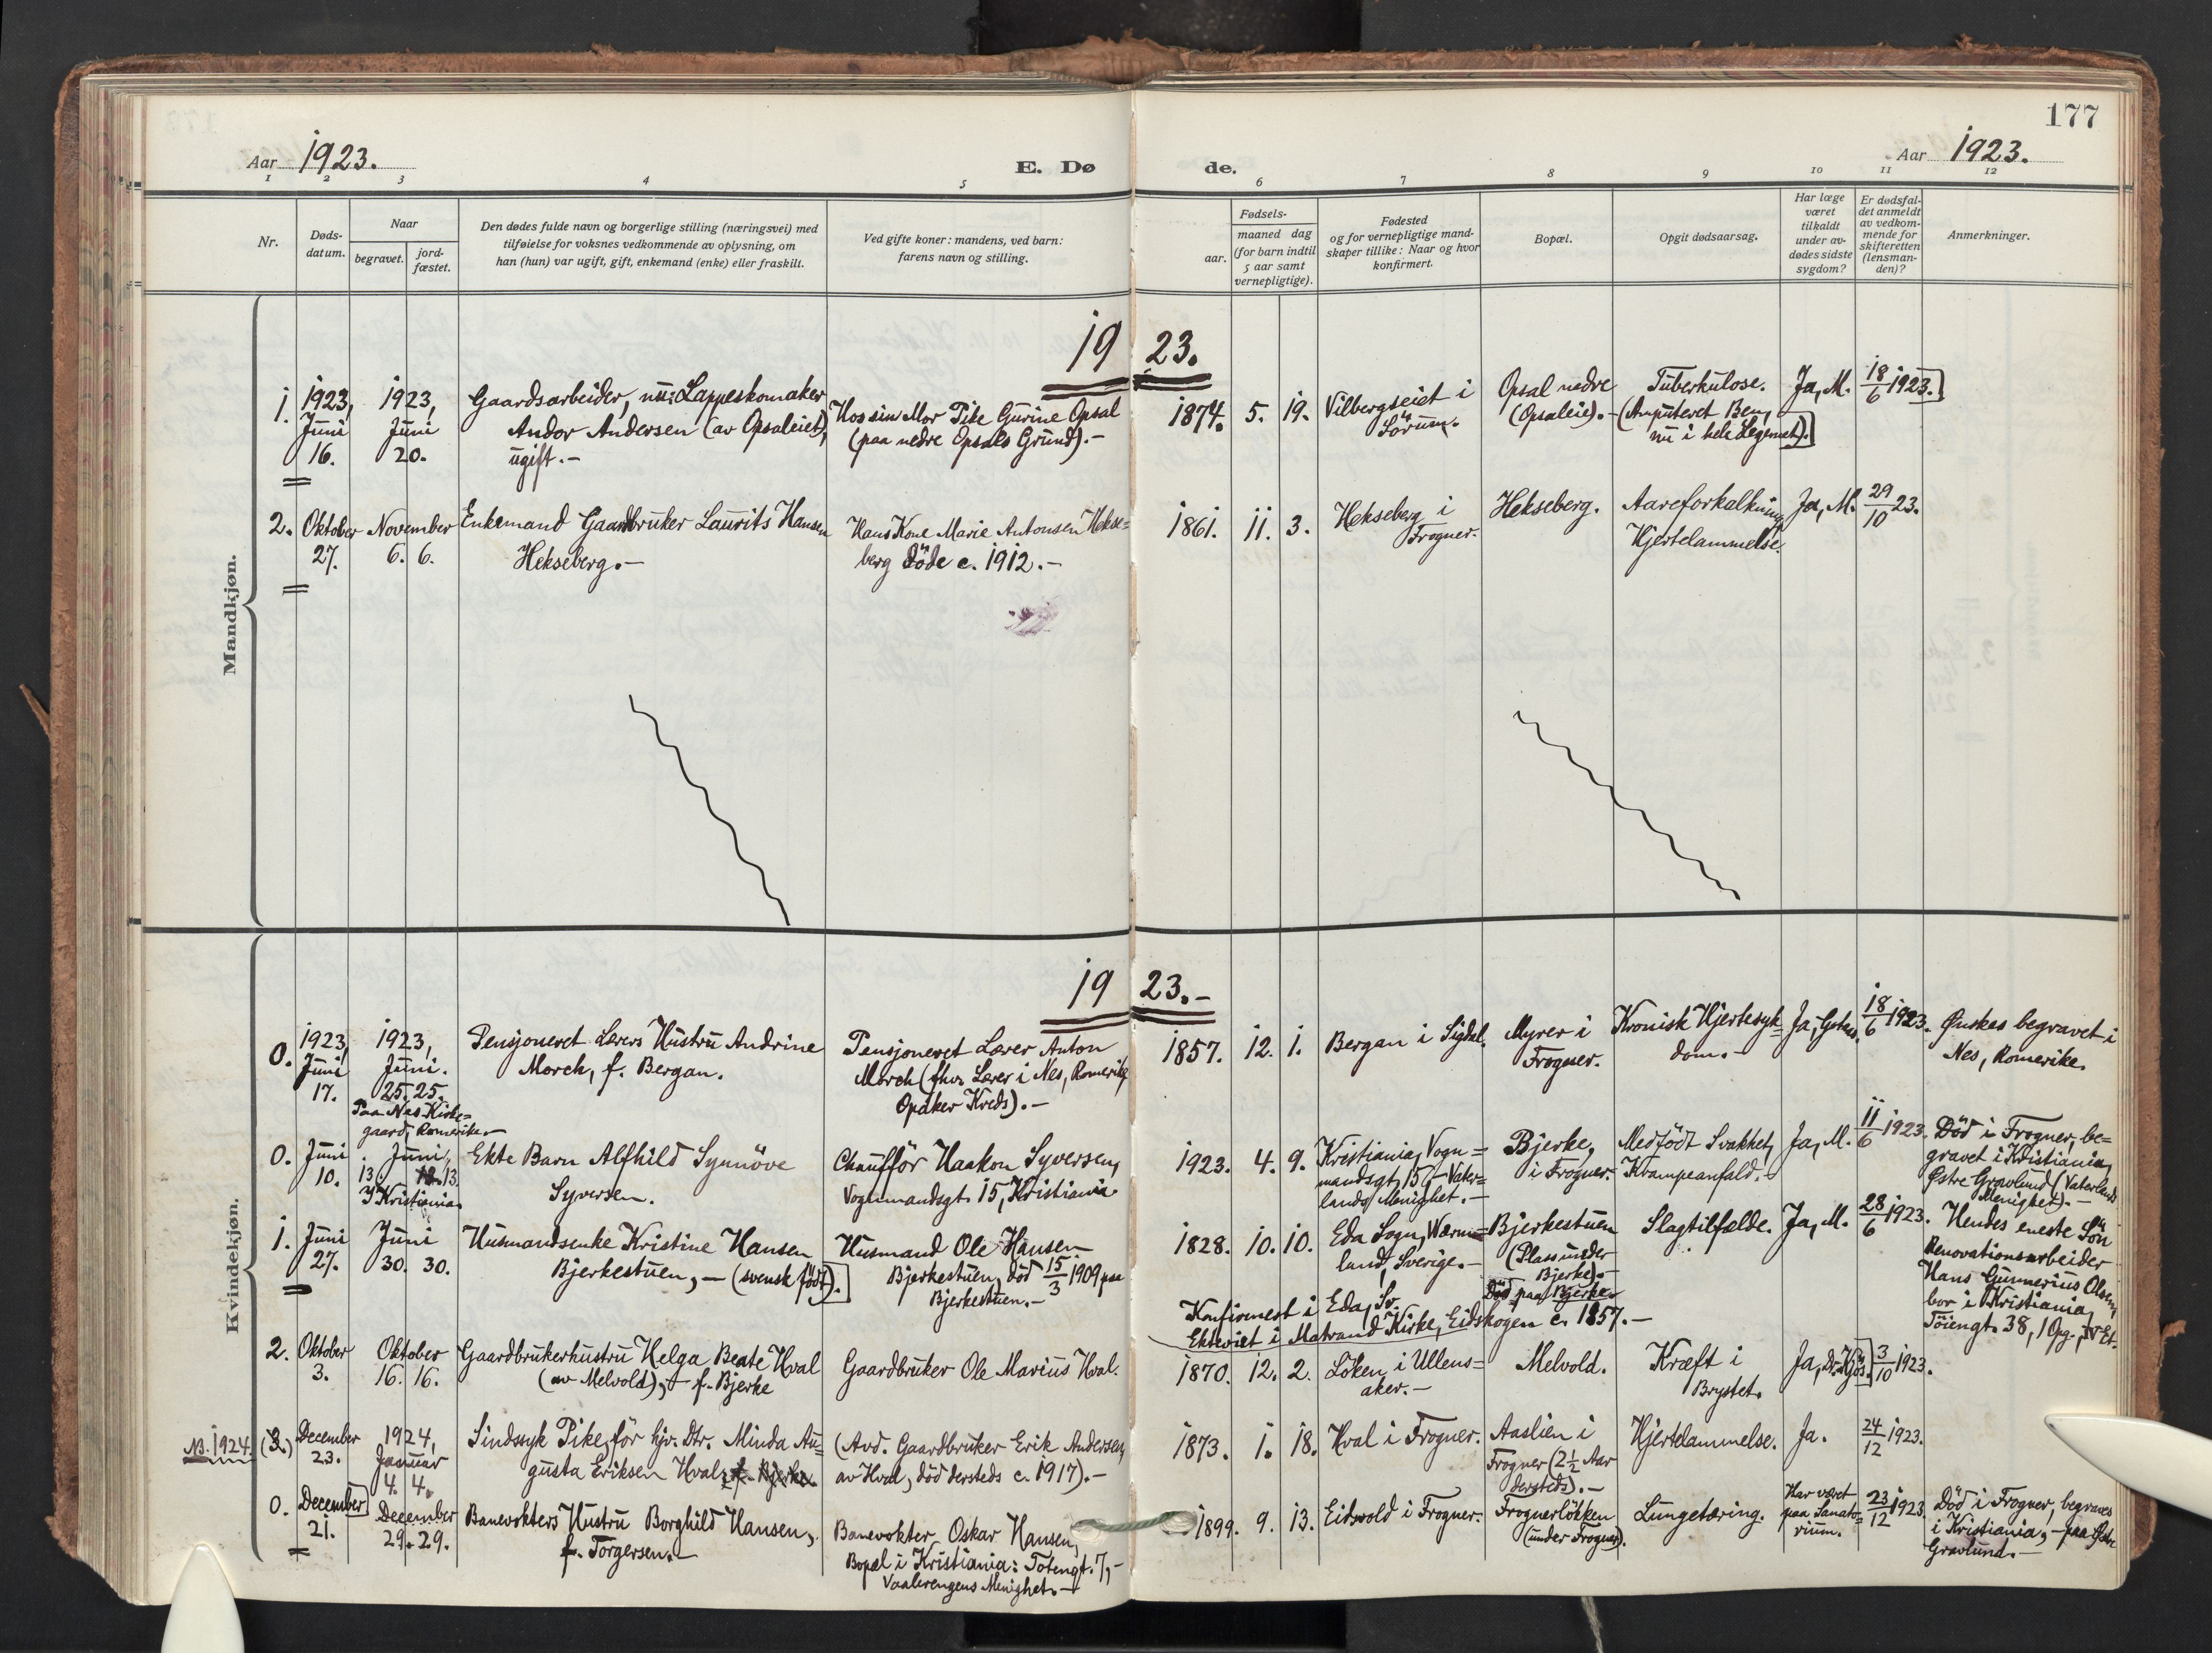 177
Aar 1923.
E. Dø de.
Aar 1923.
1 2 3 4 5 6 7 8 9 10 11 12
Nr.
Døds-
datum.
Naar
begravet.
jord-
fæstet.
Den dødes fulde navn og borgerlige stilling (næringsvei) med
tilføielse for voksnes vedkommende av oplysning, om
han (hun) var ugift, gift, enkemand (enke) eller fraskilt.
Ved gifte koner: mandens, ved barn:
farens navn og stilling.
Fødsels-
aar.
maaned dag
(for barn indtil
5 aar samt
vernepligtige).
Fødested
og for vernepligtige mand-
skaper tillike: Naar og hvor
konfirmert.
Bopæl.
Opgit dødsaarsag.
Har læge
været
tilkaldt
under av-
dødes sidste
sygdom?
Er dødsfal-
det anmeldt
av vedkom-
mende for
skifteretten
(lensman-
den)?
Anmerkninger.
Mandkjøn.
1923.
1.
1923,
Juni
16.
1923,
Juni
20.
Gaardsarbeider, nu: Lappeskomaker
Andor Andersen (av Opsaleiet),
ugift.-
Hos sin Mor Pike Gurine Opsal
(paa nedre Opsals Grund).-
1874. 5. 19.
Vilbergseiet i
Sörum.
Opsal nedre
(Opsaleie).-
Tuberkulose.
(Amputeret Ben,
nu i hele Legemet).
Ja, M.
18/6 1923.
2.
Oktober
27.
November
6. 6.
Enkemand Gaardbruker Laurits Hansen
Hekseberg.-
Hans Kone Marie Antonsen Hekse=
berg döde c. 1912.-
1861. 11. 3.
Hekseberg i
Frogner.
Hekseberg.
Aareforkalkning
Hjertelammelse.
Ja, M.
29/10 23.
Kvindekjøn.
1923.-
0.
1923,
Juni
17.
1923,
Juni.
25. 25.
Paa Nes Kirke=
gaard, Romerike.
Pensjoneret Lærers Hustru Andrine
Morch, f. Bergan.
Pensjoneret Lærer Anton
Morch (fhv. Lærer i Nes, Romerike
Opaker Kreds).-
1857. 12. 1.
Bergan i Sigdal.
Myrer i
Frogner.
Kronisk Hjertesyk=
dom.-
Ja,
18/6 1923.
Ønskes begravet i
Nes, Romerike.
0.
Juni
10.
Juni,
13. 13.
I Kristiania.
Ekte Barn Alfhild Synnöve
Syversen.
Chauffør Haakon Syversen,
Vognmandsgt. 15, Kristiania.
1923. 4. 9.
Kristiania, Vogn=
mandsgt. 15,- Vater=
lands Menighet.-
Bjerke,
i Frogner.
Medfödt Svakhet,
Krampeanfald.-
Ja, M.
11/6 1923.
Död i Frogner, be=
gravet i Kristiania,
Østre Gravlund (Vaterlands
Menighet).-
1.
Juni
27.
Juni
30. 30.
Husmandsenke Kristine Hansen
Bjerkestuen,- (svensk födt).
Husmand Ole Hansen
Bjerkestuen, död 15/3 1909 paa
Bjerkestuen.-
1828. 10. 10.
Eda Sogn, Wærm=
land, Sverige.-
Bjerkestuen
(Plass under
Bjerke).-
Död paa Bjerke.
Slagtilfælde.
Ja, M.
28/6 1923.
Hendes eneste Sön
Renovationsarbeider
Hans Gunnerius Olsen,
bor i Kristiania,
Töiengt. 38, 1 Opg., IV Et.
Konfirmert i Eda, Sv.
Ekteviet i Matrand Kirke, Eidskogen c. 1857.-
2.
Oktober
3.
Oktober
16. 16.
Gaardbrukerhustru Helga Beate Hval
(av Melvold),- f. Bjerke
Gaardbruker Ole Marius Hval.
1870. 12. 2.
Löken i Ullens=
aker.-
Melvold.
Kræft i
Brystet.
Ja, Dr. Kjös.
3/10 1923.
NB. 1924.
(3.)
December
23.
1924,
Januar
4. 4.
Sindssyk Pike, för hjv. Dtr. Minda Au=
gusta Eriksen Hval, f. Bjerke.
(Avd. Gaardbruker Erik Andersen,
av Hval, död dersteds c. 1917).-
1873. 1. 18.
Hval i Frogner.
Aaslien i
Frogner (2½ Aar
dersteds).-
Hjertelammelse.
Ja.
24/12 1923.
0.
December
21.
December
29. 29.
Banevokters Hustru Borghild Hansen,
f. Torgersen.-
Banevokter Oskar Hansen,
Bopæl i Kristiania: Totengt. 7,-
Vaalerengens Menighet.-
1899. 9. 13.
Eidwold i Frogner.
Frognerlökken
(under Frogner).
Lungetæring.
Har været
paa Sanato=
rium.
23/12 1923.
Död i Frogner, begraves
i Kristiania,- paa Østre
Gravlund.-